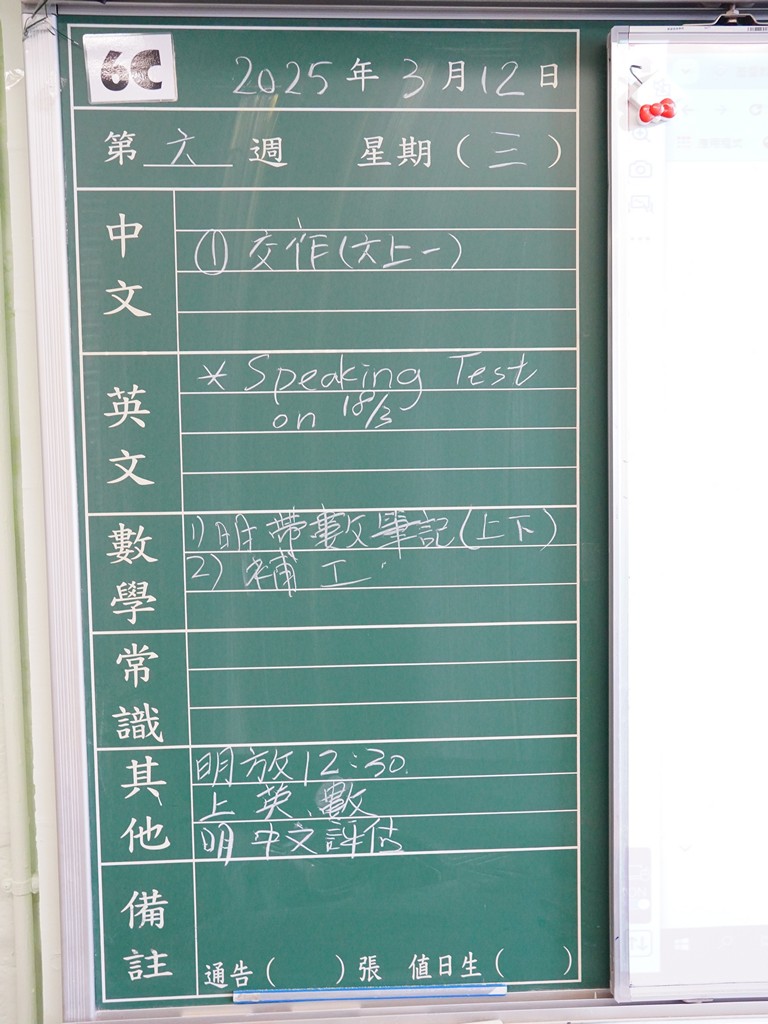 6C
2025年3月12日
第六週 星期(三)
中文
① 交作(六上一)
英文
* Speaking Test
on 18/3
數學
1) 明帶數筆記(上下)
2) 補工
常識
其他
明放12:30.
上英、數
明中文評估
備註
通告( )張 值日生( )